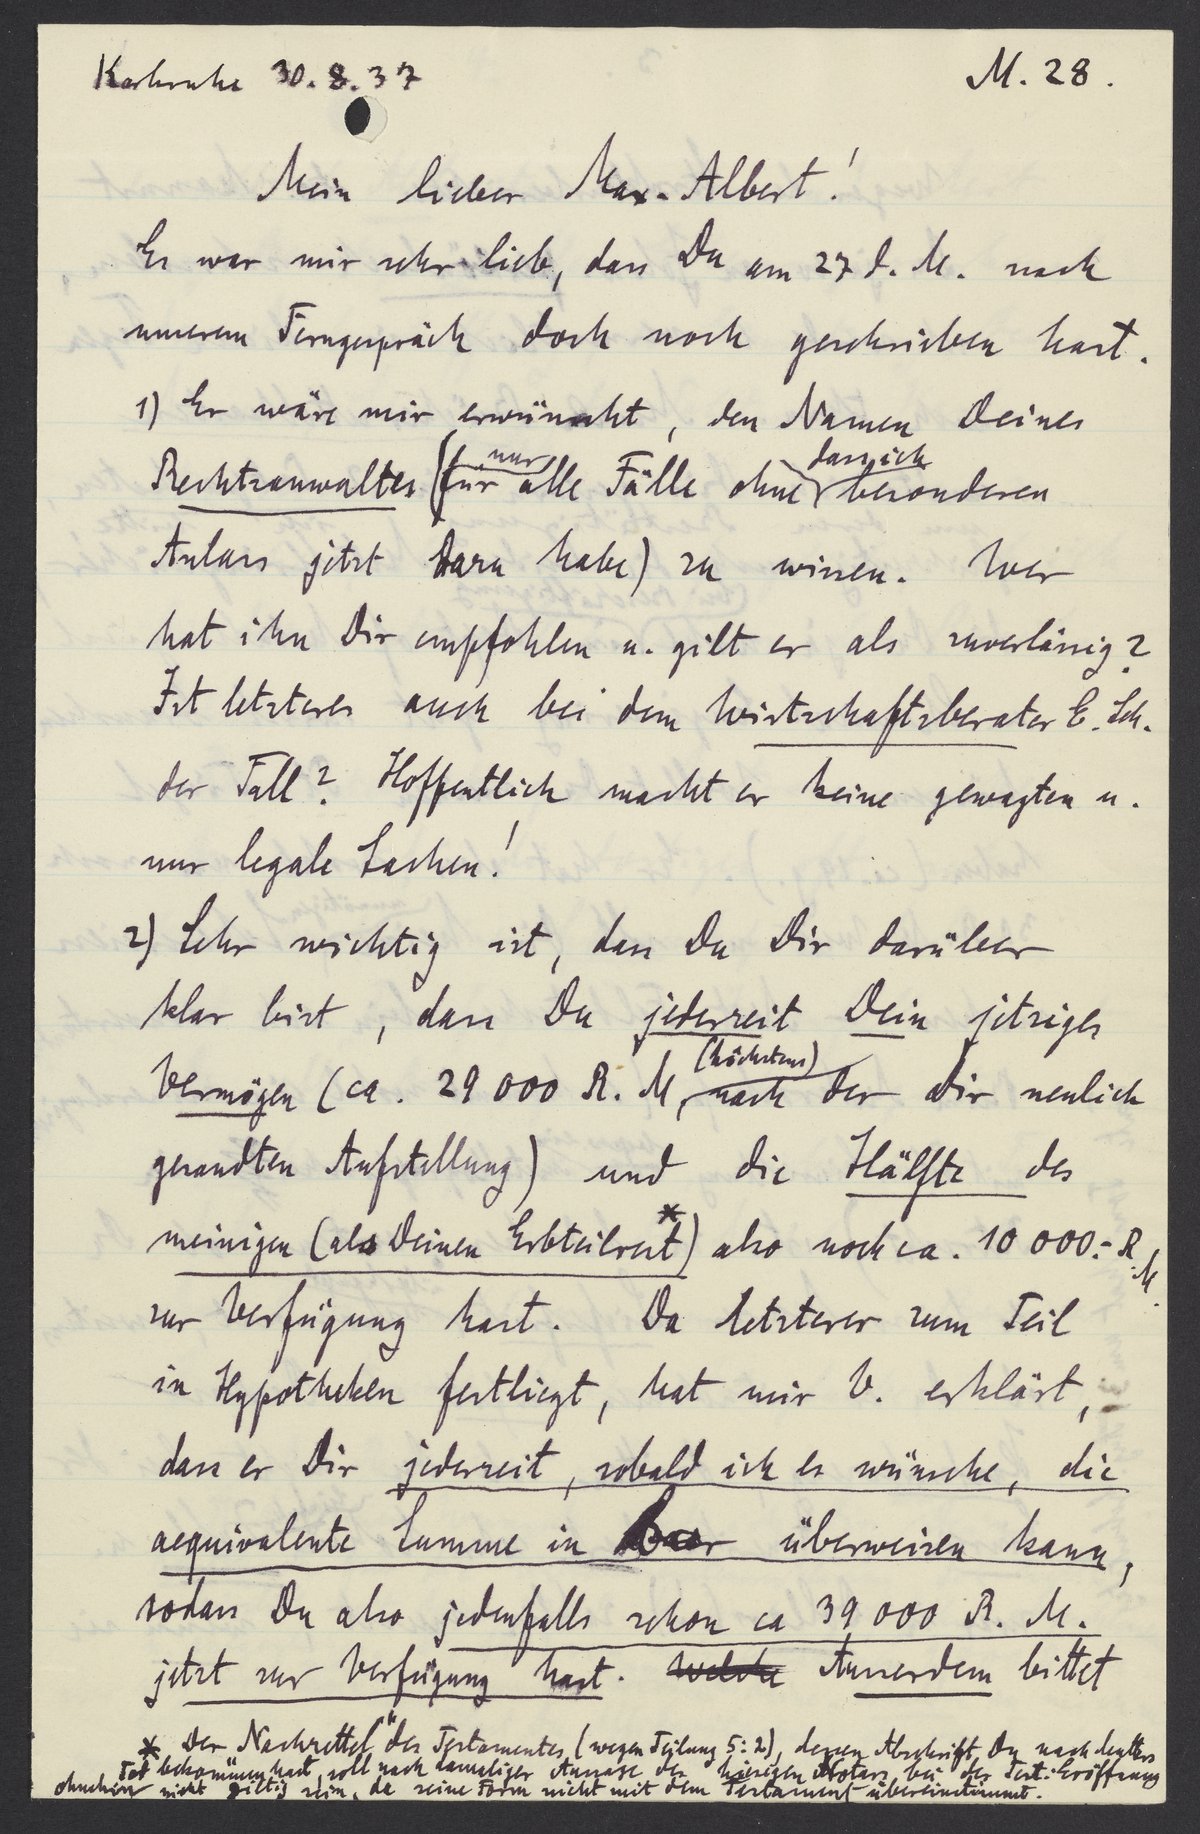 Karlsruhe 30.8.37 M. 28.
Mein lieber Max-Albert!
Es war mir sehr lieb, dass Du am 27 d. M. nach
unserem Ferngespräch doch noch geschrieben hast.
1) Es wäre mir erwünscht, den Namen Deines
nur dass ich
Rechtsanwaltes (für alle Fälle ohne besonderen
Anlass jetzt dazu habe) zu wissen. Wer
hat ihn Dir empfohlen u. gilt er als zuverlässig?
Ist letzteres auch bei dem Wirtschaftsberater E. Sch.
der Fall? Hoffentlich macht er keine gewagten u.
nur legale Sachen!
2) Sehr wichtig ist, dass Du Dir darüber
klar bist, dass Du jederzeit Dein jetziges
(höchstens)
Vermögen (ca. 29 000 R. M, nach der Dir neulich
gesandten Aufstellung) und die Hälfte des
meinigen (als Deinen Erbteilrest*) also noch ca. 10 000.- R.M.
zur Verfügung hast. Da letzterer zum Teil
in Hypotheken festliegt, hat mir V. erklärt,
dass er Dir jederzeit, sobald ich es wünsche, die
aequivalente Summe in Baar überweisen kann,
sodass Du also jedenfalls schon ca 39 000 R. M.
jetzt zur Verfügung hast. Welche Ausserdem bittet
* Der Nachzettel" des Testamentes (wegen Teilung 5:2), dessen Abschrift Du nach
Tod bekommen hast, soll nach damaliger Aussage des hiesigen Notars bei der Test.-Eröffnung
ohnehin nicht giltig sein, da seine Form nicht mit dem Testament übereinstimmt.